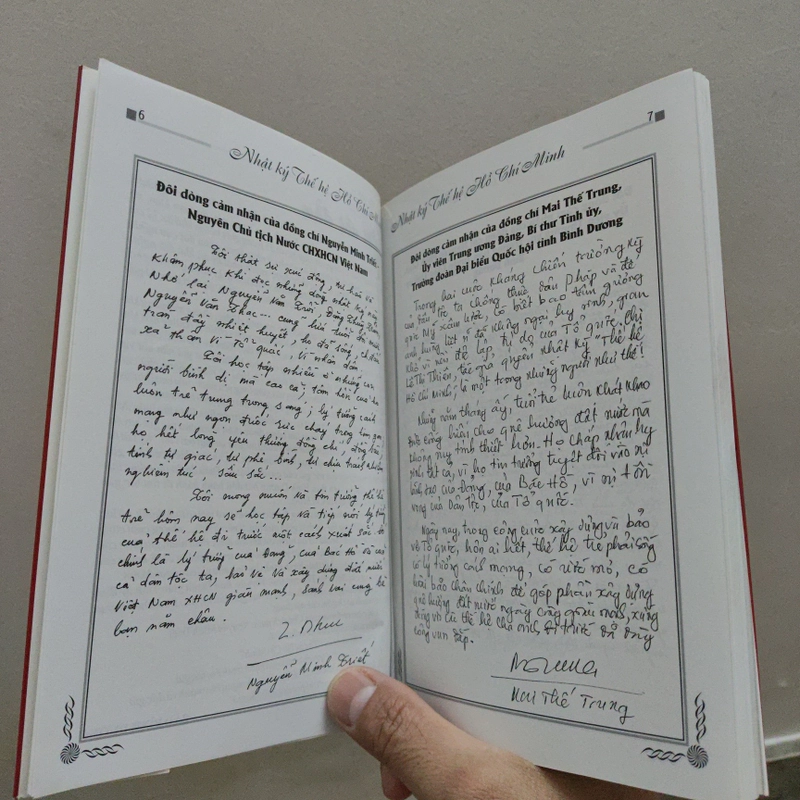 6
Nhật ký Thế hệ Hồ Chí M
Đôi dòng cảm nhận của đồng chí Nguyễn Minh Triết,
Nguyên Chủ tịch Nước CHXHCN Việt Nam
Tôi thật sự xúc động, tự hào và
khâm phục khi đọc những dòng nhật ký này
Nhớ lại Nguyễn Văn Trỗi, Đặng Thùy Trâm
Nguyễn Văn Thạc... cùng lứa tuổi đôi mươi
tràn đầy nhiệt huyết, họ đã sống, chiến đấu
xả thân vì Tổ quốc, vì nhân dân.
Tôi học tập nhiều ở những con
người bình dị mà cao cả, tâm hồn của họ
luôn trẻ trung trong sáng; lý tưởng cách
mạng như ngọn đuốc rực cháy trong tim gan
họ, hết lòng yêu thương đồng chí, đồng bào,
tính tự giác, tự phê bình, tự chịu trách nhiệm
nghiêm túc, sâu sắc...
Tôi mong muốn và tin tưởng thế hệ
trẻ hôm nay sẽ học tập và tiếp nối lý tưởng
của thế hệ đi trước một cách xuất sắc đó
chính là lý tưởng của Đảng, của Bác Hồ và của
cả dân tộc ta, bảo vệ và xây dựng đất nước
Việt Nam XHCN giàu mạnh, sánh vai cùng bè
bạn năm châu.
Nguyễn Minh Triết
7
Nhật ký Thế hệ Hồ Chí Minh
Đôi dòng cảm nhận của đồng chí Mai Thế Trung,
Ủy viên Trung ương Đảng, Bí thư Tỉnh ủy,
Trưởng đoàn Đại biểu Quốc hội tỉnh Bình Dương
Trong hai cuộc kháng chiến trường kỳ
của dân tộc ta chống thực dân Pháp và đế
quốc Mỹ xâm lược, có biết bao tấm gương
anh hùng liệt sĩ đã không ngại hy sinh, gian
khổ vì nền độc lập, tự do của Tổ quốc. Chị
Lê Thị Thiên, tác giả quyển nhật ký "Thế hệ
Hồ Chí Minh", là một trong những người như thế!
Những năm tháng ấy, tuổi trẻ luôn khát khao
được cống hiến cho quê hương đất nước mà
không suy tính thiệt hơn. Họ chấp nhận hy
sinh tất cả, vì họ tin tưởng tuyệt đối vào sự
lãnh đạo của Đảng, của Bác Hồ, vì sự tồn
vong của dân tộc, của Tổ quốc.
Ngày nay, trong công cuộc xây dựng và bảo
vệ Tổ quốc, hơn ai hết, thế hệ trẻ phải sống
có lý tưởng cách mạng, có ước mơ, có
hoài bão chân chính để góp phần xây dựng
quê hương đất nước ngày càng giàu mạnh, xứng
đáng với các thế hệ cha anh đi trước đã dày
công vun đắp.
Mai Thế Trung